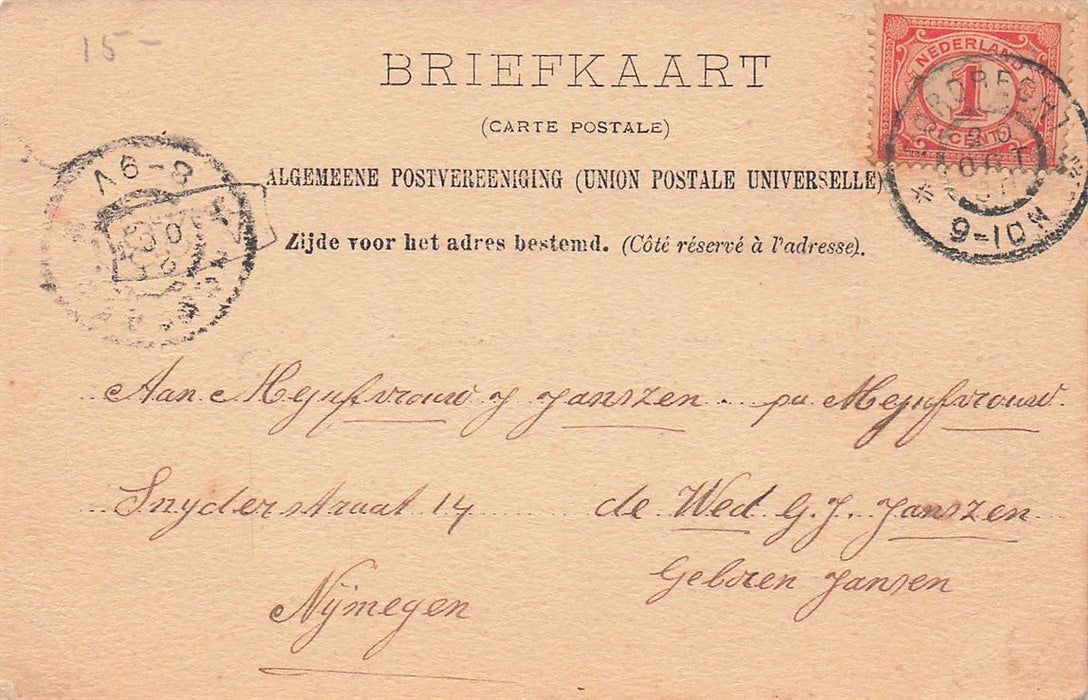 15-
BRIEFKAART
(CARTE POSTALE)
ALGEMEENE POSTVEREENIGING (UNION POSTALE UNIVERSELLE)
Zijde voor het adres bestemd. (Côté réservé à l'adresse).
NEDERLAND
1
CENT
DORDRECHT
9-10N
8-9V
Aan Mejufvrouw J Janszen pu Mejufvrouw
Snyderstraat 14 de Wed G. J. Janszen
Nijmegen Geboren Jansen